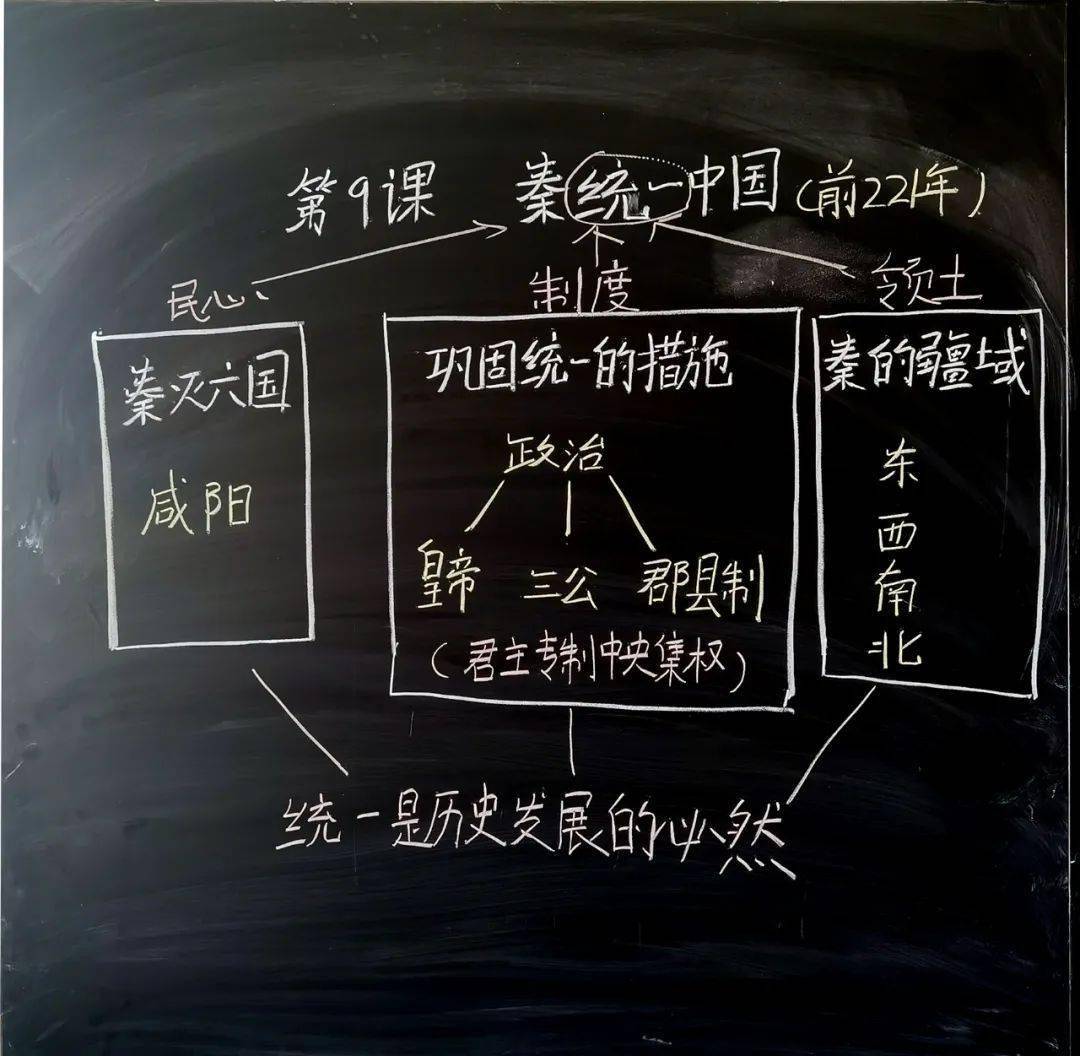 第9课 秦统一中国(前221年)
民心
制度
领土
秦灭六国
咸阳
巩固统一的措施
政治
皇帝 三公 郡县制
(君主专制中央集权)
秦的疆域
东
西
南
北
统一是历史发展的必然